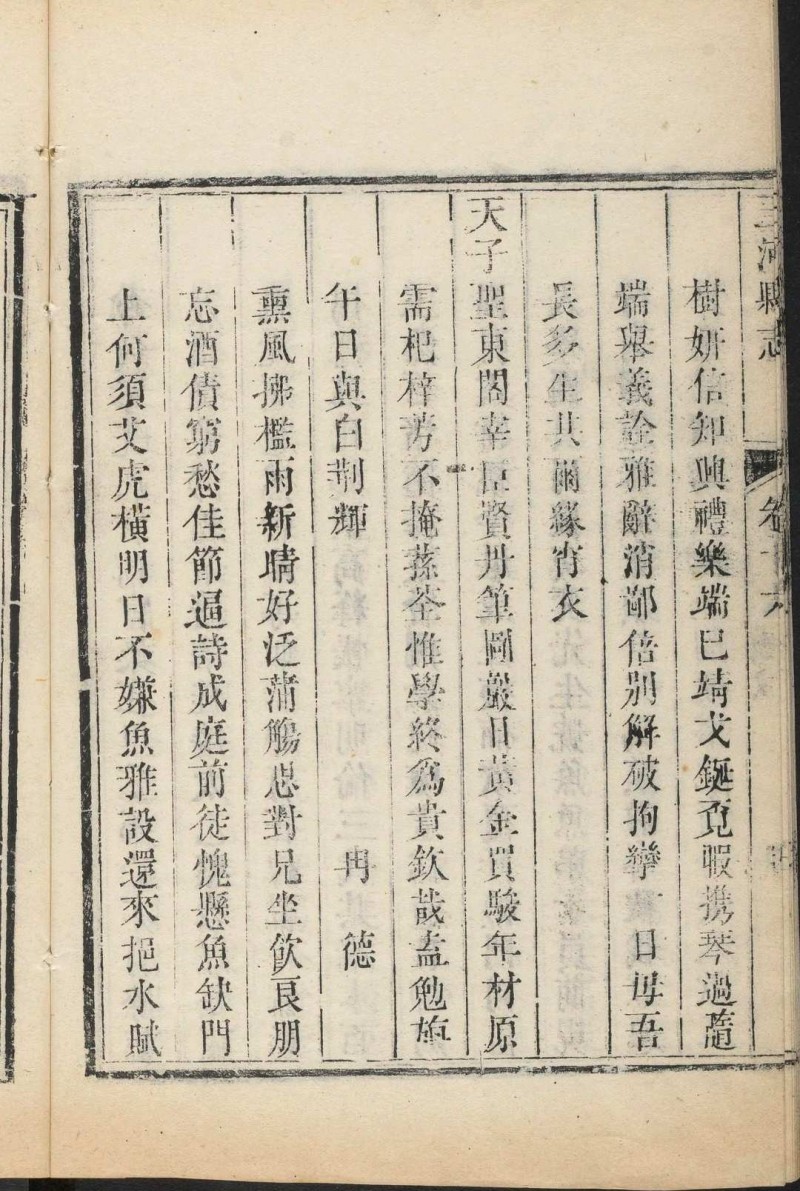 三河縣志 卷十六
樹妍信知興禮樂端已靖戈鋋覔暇携琴過蘊
端舉義詮雅辭消鄙倍別解破拘攣一日毋吾
長多生共爾緣宵衣
天子聖東閣宰臣賢丹筆圖嚴日黃金買駿年材原
需杞梓芳不掩蓀荃惟學終爲貴欽哉盍勉旃
午日與白荆輝 冉德
熏風拂檻雨新晴好泛蒲觴思對兄坐飲良朋
忘酒債窮愁佳節逼詩成庭前徒愧懸魚缺門
上何須艾虎橫明日不嫌魚雅設還來挹水賦